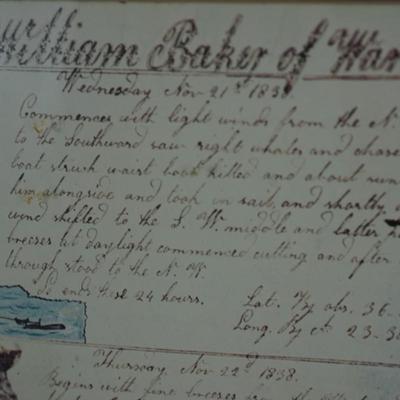 William Baker of War
Wednesday Nov 21st 1838
Commences with light winds from the N.
to the Southward saw right whales and chase
boat struck waist boat killed and about sun
him alongside and took in sail and shortly
wind shifted to the S. W. middle and latter
breeses at daylight commenced cutting and after
through stood to the N. W.
So ends these 24 hours.
Lat. By obs. 36-
Long. By 23-30
Thursday Nov 22d 1838.
Begins with fine breeses from